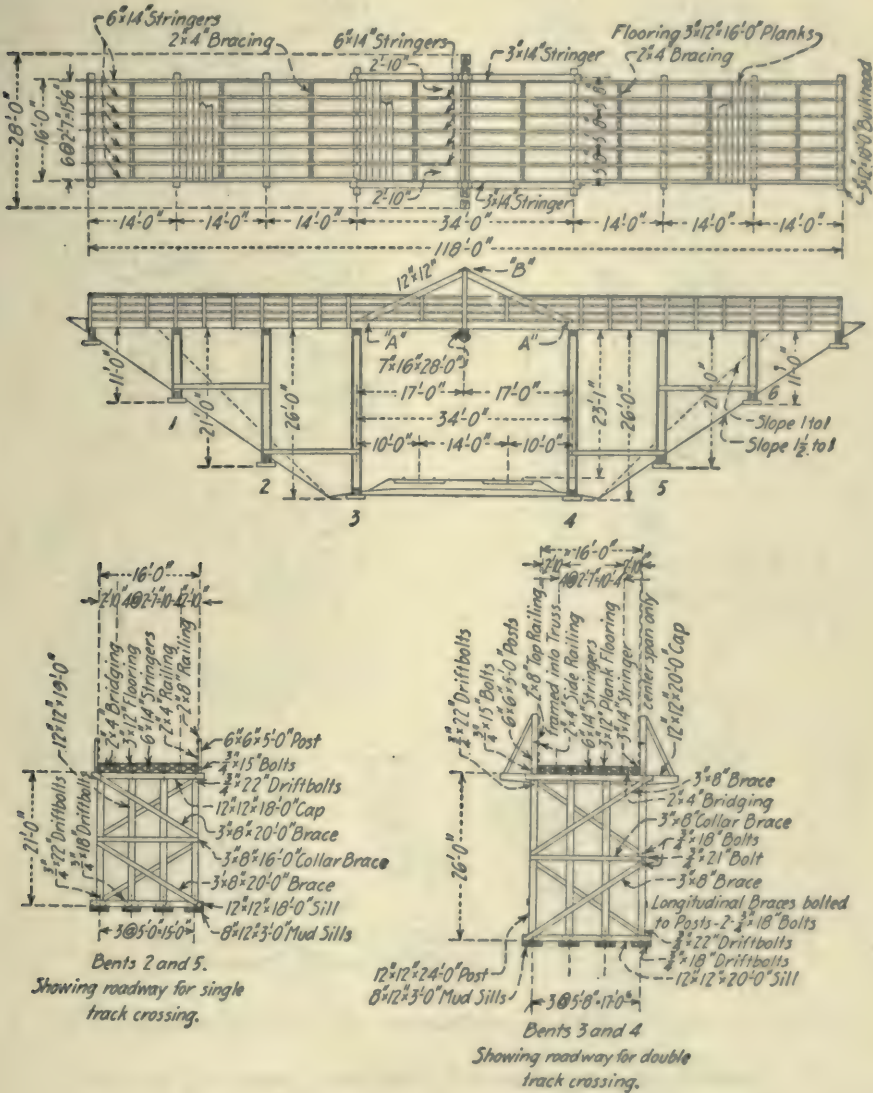 6"x14" Stringers
2"x4" Bracing
6"x14" Stringers
3"x14" Stringer
Flooring 3"x12"x16'-0" Planks
2"x4" Bracing
2'-10"
28'-0"
16'-0"
6@2'-7"=15'-6"
2'-10"
3"x14" Stringer
3"x12"x18'-0" Bulkhead
14'-0" 14'-0" 14'-0" 34'-0" 14'-0" 14'-0" 14'-0"
118'-0"
12"x12"
"B"
"A"
A"
7"x16"x28'-0"
11'-0"
21'-0"
26'-0"
17'-0" 17'-0"
34'-0"
10'-0" 14'-0" 10'-0"
23'-1"
26'-0"
21'-0"
11'-0"
Slope 1 to 1
Slope 1½ to 1
1
2
3
4
5
6
16'-0"
2'-10" 4@2'-7"=10'-4" 2'-10"
12"x12"x19'-0"
2"x4" Bridging
3"x12" Flooring
6"x14" Stringers
2"x4" Railing
2"x8" Railing
6"x6"x5'-0" Post
¾"x15" Bolts
¾"x22" Driftbolts
12"x12"x18'-0" Cap
3"x8"x20'-0" Brace
3"x8"x16'-0" Collar Brace
3"x8"x20'-0" Brace
12"x12"x18'-0" Sill
8"x12"x3'-0" Mud Sills
21'-0"
¾"x22" Driftbolts
¾"x18" Driftbolts
3@5'-0"=15'-0"
Bents 2 and 5.
Showing roadway for single
track crossing.
16'-0"
2'-10" 4@2'-7"=10'-4" 2'-10"
¾"x22" Driftbolts
¾"x15" Bolts
6"x6"x5'-0" Posts
2"x8" Top Railing
framed into Truss
2"x4" Side Railing
6"x14" Stringers
3"x12" Plank Flooring
3"x14" Stringer
center span only
12"x12"x20'-0" Cap
3"x8" Brace
2"x4" Bridging
3"x8" Collar Brace
¾"x18" Bolts
¾"x21" Bolt
3"x8" Brace
Longitudinal Braces bolted
to Posts-2-¾"x18" Bolts
¾"x22" Driftbolts
¾"x18" Driftbolts
12"x12"x20'-0" Sill
26'-0"
12"x12"x24'-0" Post
8"x12"x3'-0" Mud Sills
3@5'-8"=17'-0"
Bents 3 and 4
Showing roadway for double
track crossing.